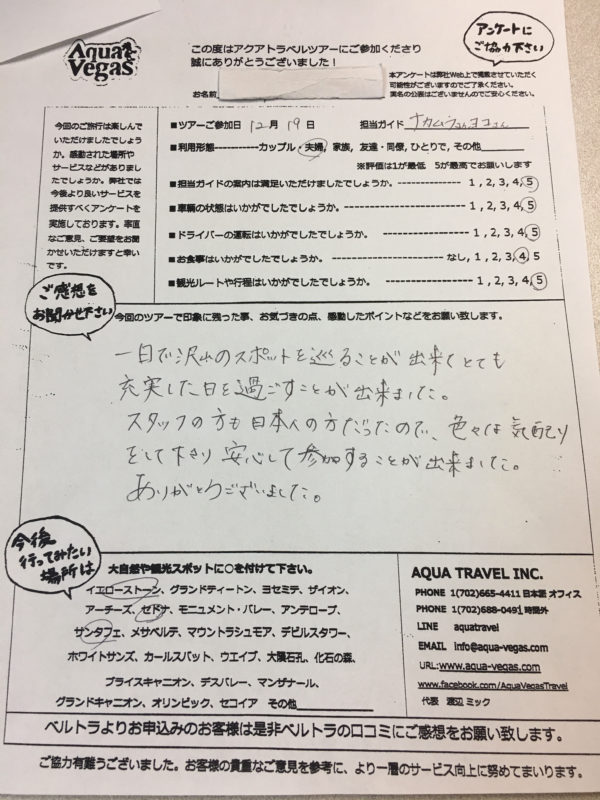 Aqua Vegas
この度はアクアトラベルツアーにご参加くださり
誠にありがとうございました！
アンケートに
ご協力下さい
お名前
本アンケートは弊社Web上で掲載させていただく
可能性がございますのでご了承ください。
実名の公表はございませんのでご安心ください。
今回のご旅行は楽しんで
いただけましたでしょう
か。感動された場所や
サービスなどがありまし
たでしょうか。弊社では
今後より良いサービスを
提供すべくアンケートを
実施しております。率直
なご意見、ご要望をお聞
かせいただけますと幸い
です。
■ツアーご参加日 12月 19日 担当ガイド ナカムラさん ヨコさん
■利用形態------------カップル, 夫婦, 家族, 友達・同僚, ひとりで, その他
※評価は1が最低 5が最高でお願いします
■担当ガイドの案内は満足いただけましたでしょうか。 -------------- 1 , 2, 3, 4, 5
■車輛の状態はいかがでしたでしょうか。 -------------- 1 , 2, 3, 4, 5
■ドライバーの運転はいかがでしたでしょうか。 -------------- 1 , 2, 3, 4, 5
■お食事はいかがでしたでしょうか。 -------------- なし, 1, 2, 3, 4, 5
■観光ルートや行程はいかがでしたでしょうか。 -------------- 1, 2, 3, 4, 5
ご感想を
お聞かせ下さい
今回のツアーで印象に残った事、お気づきの点、感動したポイントなどをお願い致します。
一日で沢山のスポットを巡ることが出来くとても
充実した日を過ごすことが出来ました。
スタッフの方も日本人の方だったので、色々な気配り
をして下さり 安心して参加することが出来ました。
ありがとうございました。
今後
行ってみたい
場所は
大自然や観光スポットに○を付けて下さい。
イエローストーン、グランドティートン、ヨセミテ、ザイオン、
アーチーズ、セドナ、モニュメント・バレー、アンテロープ、
サンタフェ、メサベルデ、マウントラシュモア、デビルスタワー、
ホワイトサンズ、カールスバット、ウエイブ、大隕石孔、化石の森、
ブライスキャニオン、デスバレー、マンザナール、
グランドキャニオン、オリンピック、セコイア その他
AQUA TRAVEL INC.
PHONE 1(702)665-4411 日本語 オフィス
PHONE 1(702)688-0491 時間外
LINE aquatravel
EMAIL info@aqua-vegas.com
URL:www.aqua-vegas.com
www.facebook.com/AquaVegasTravel
代表 渡辺 ミック
ベルトラよりお申込みのお客様は是非ベルトラの口コミにご感想をお願い致します。
ご協力有難うございました。お客様の貴重なご意見を参考に、より一層のサービス向上に努めてまいります。